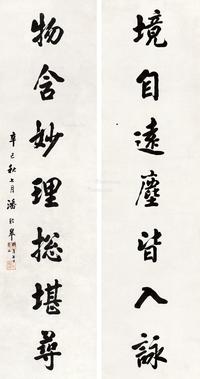 境自遠塵皆入詠
物含妙理總堪尋
辛巳秋七月潘齡皋